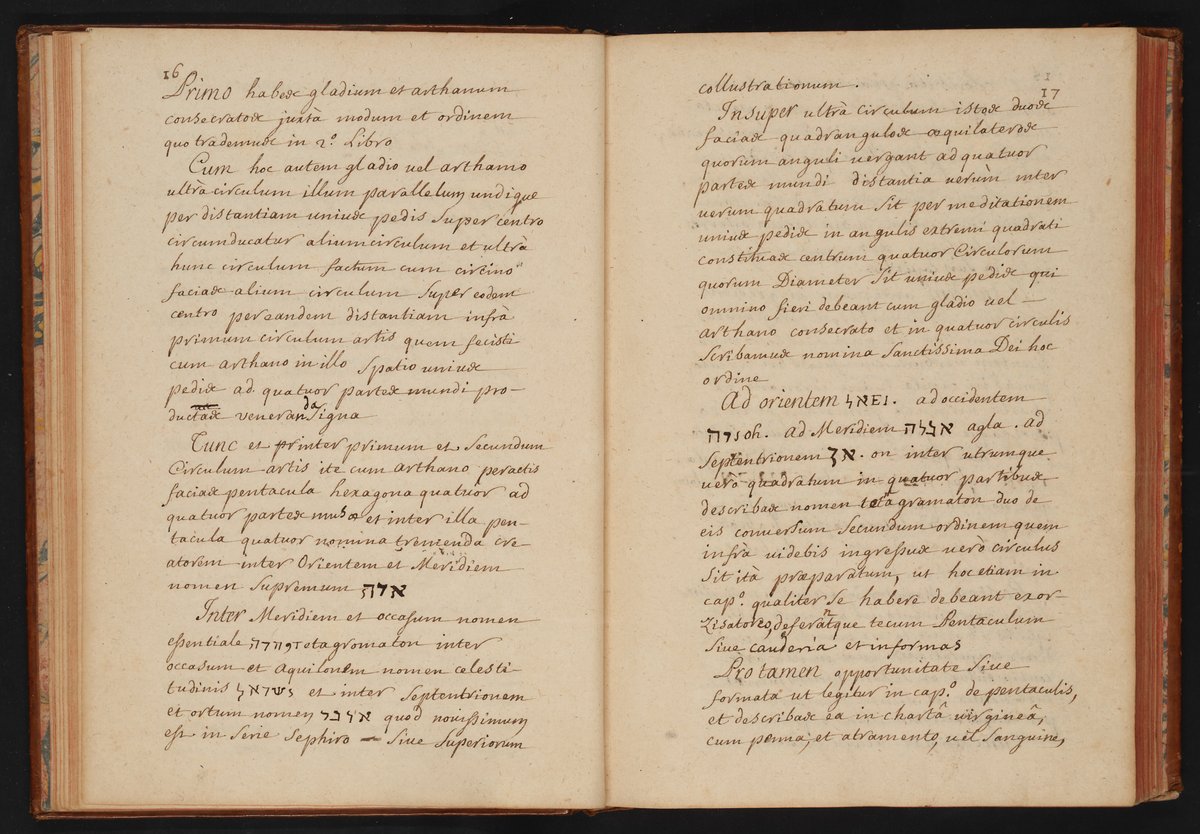 16
Primo habeas gladium et arthanum
consecratos juxtà modum et ordinem
quo trademus in 2.º Libro
Cum hoc autem gladio vel arthamo
ultrà circulum illum parallelum undique
per distantiam unius pedis super centro
circumducatur alium circulum et ultra
hunc circulum factum cum circino
facias alium circulum super eodem
centro per eandem distantiam infrà
primum circulum artis quem fecisti
cum arthano in illo spatio unius
pedis ad quatuor partes mundi pro-
ductas veneranda signa
Tunc et inter primum et secundum
Circulum artis ite cum arthano peractis
facias pentacula hexagona quatuor ad
quatuor partes et inter illa pen-
tacula quatuor nomina tremenda cre-
atorem inter Orientem et Meridiem
nomen supremum אלה
Inter Meridiem et occasum nomen
essentiale tetagromaton inter
occasum et Aquilonem nomen celesti-
tudinis et inter septentrionem
et ortum nomen quod novissimum
est in serie Sephiro — sive superiorum
1
17
collustrationum.
Insuper ultrà circulum istos duos
facias quadrangulos æquilateros
quorum anguli vergant ad quatuor
partes mundi distantia verùm inter
verum quadratum sit per meditationem
unius pedis in angulis extremi quadrati
constituas centrum quatuor Circulorum
quorum Diameter sit unius pedis qui
omnino fieri debeant cum gladio vel —
arthano consecrato et in quatuor circulis
scribamus nomina sanctissima Dei hoc
ordine
Ad orientem ad occidentem
oh. ad Meridiem אגלה agla. ad
septentrionem אן. on inter utrumque
verò quadratum in quatuor partibus
describas nomen tetagramaton duo de
eis conversum secundum ordinem quem
infrà videbis ingressus verò circulus
sit ità præparatum, ut hoc etiam in
cap.º qualiter se habere debeant exor-
zisatores, deferantque tecum Pentaculum
sive et informas
Pro tamen opportunitate sive
formata ut legitur in cap.º de pentaculis,
et describas ea in chartâ virgineâ,
cum penna, et atramento, vel sanguine,